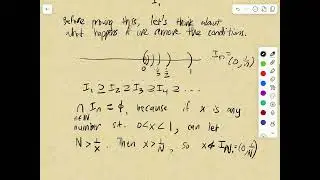 I₁
Before proving this, let's think about
what happens if we remove the conditions.
0 1/3 1/2 1 Iₙ = (0, 1/n)
I₁ ⊇ I₂ ⊇ I₃ ⊇ I₄ ⊇ ...
∩ Iₙ = ∅, because if x is any
n∈N
number s.t. 0<x<1, can let
N > 1/x. Then x > 1/N, so x ∉ I_N = (0, 1/N)